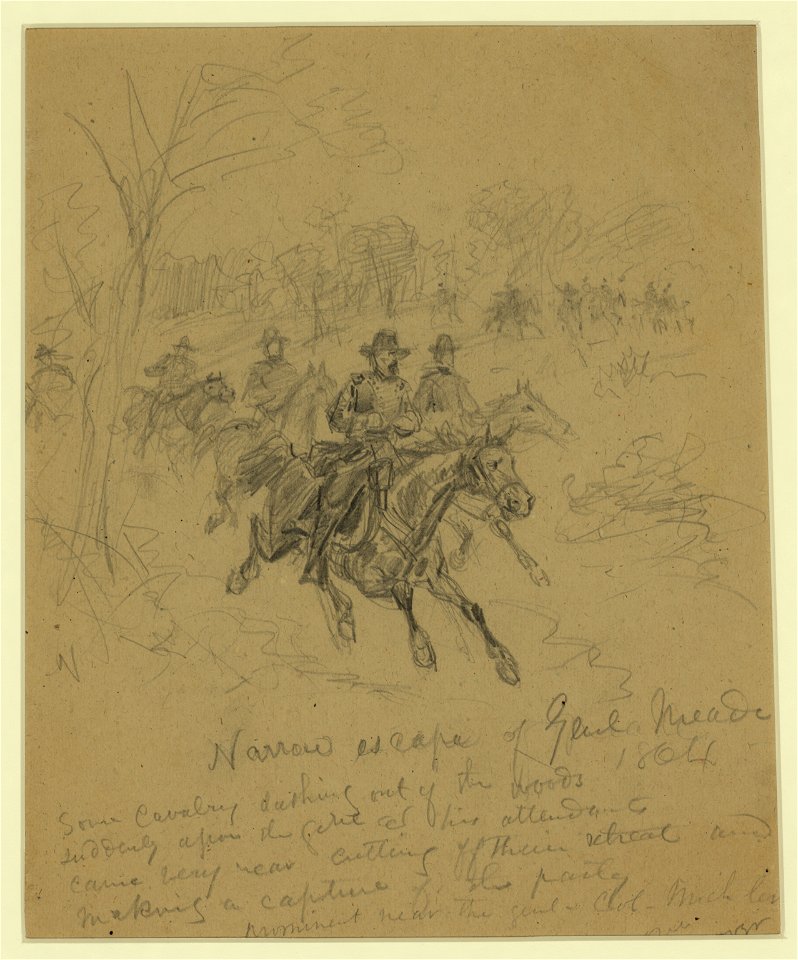 N
Narrow escape of Genl Meade
1864
Some Cavalry dashing out of the woods
suddenly upon the genl & his attendants
came very near cutting off their retreat and
making a capture of the party
prominent near the genl - Col - Michler